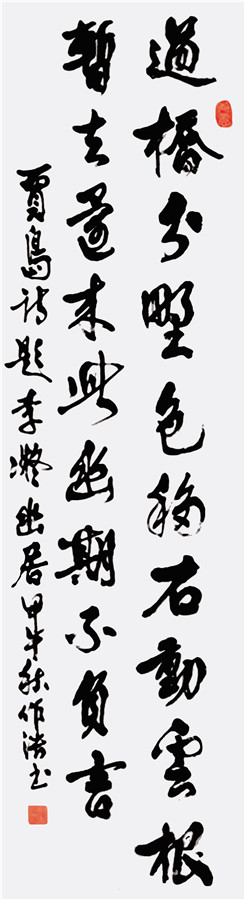 過橋分野色移石動雲根
暫去還来此幽期不負言
賈島詩題李凝幽居甲午秋作书